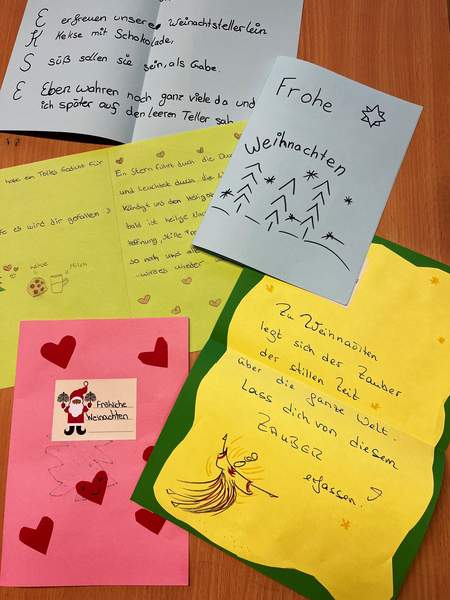 E erfreuen unsere Weinachtstellerlein
K Kekse mit Schokolade,
S süß sollen sie sein, als Gabe.
E Eben wahren noch ganz viele da und
ich später auf den leeren Teller sah
Frohe
Weihnachten
habe ein Tolles Gedicht für
es wird dir gefallen :)
Milch
Ein Stern führt duch die
und Leuchtet duch die
Kündigt uns den Heiligst
bald ist heilige
Hoffnung, Stille
so nah uns
wieder
Fröhliche
Weinachten
Zu Weihnachten
legt sich der Zauber
der stillen Zeit
über die ganze Welt.
Lass dich von diesem
ZAUBER
erfassen!